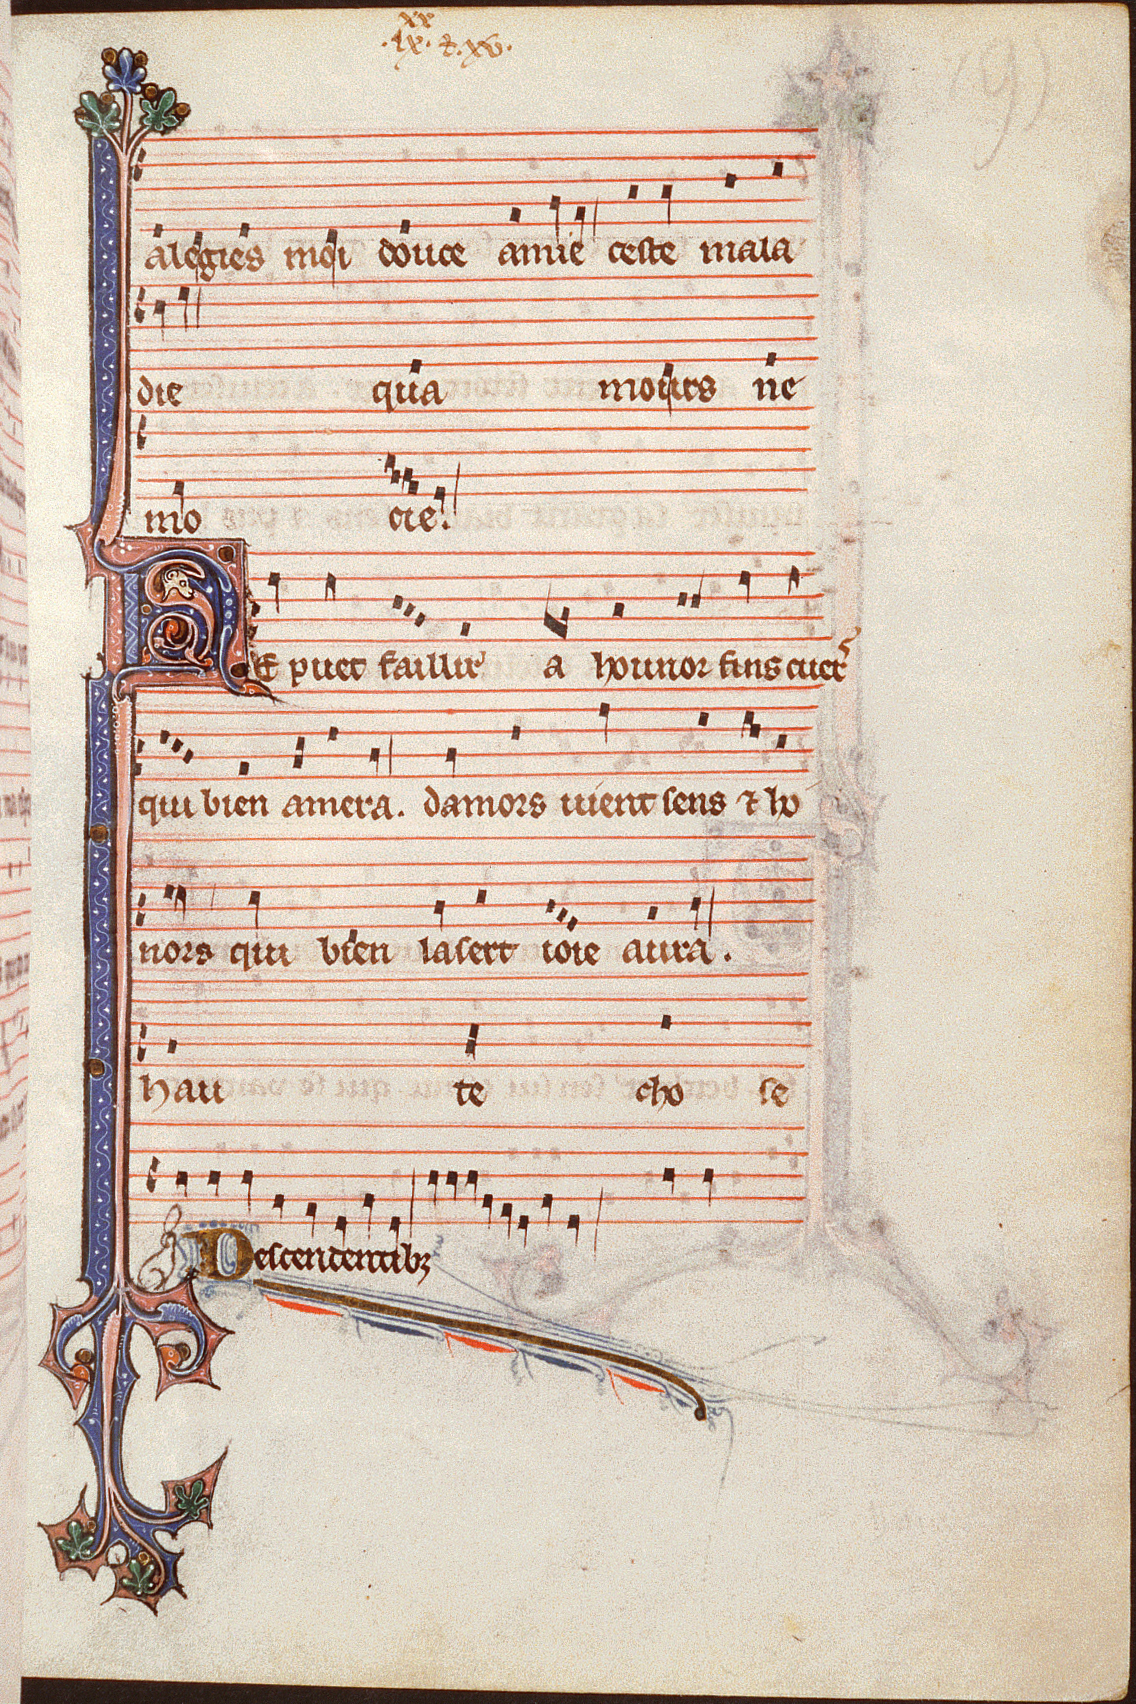 xx
.ix. & .xv.
alegies moi douce amie ceste mala
die qua mours ne
mo cie.
NE puet faillir a hounor fins cuers
qui bien amera. damors uient sens & ho
nors qui bien la sert ioie aura.
hau te cho se
Descendentibꝫ